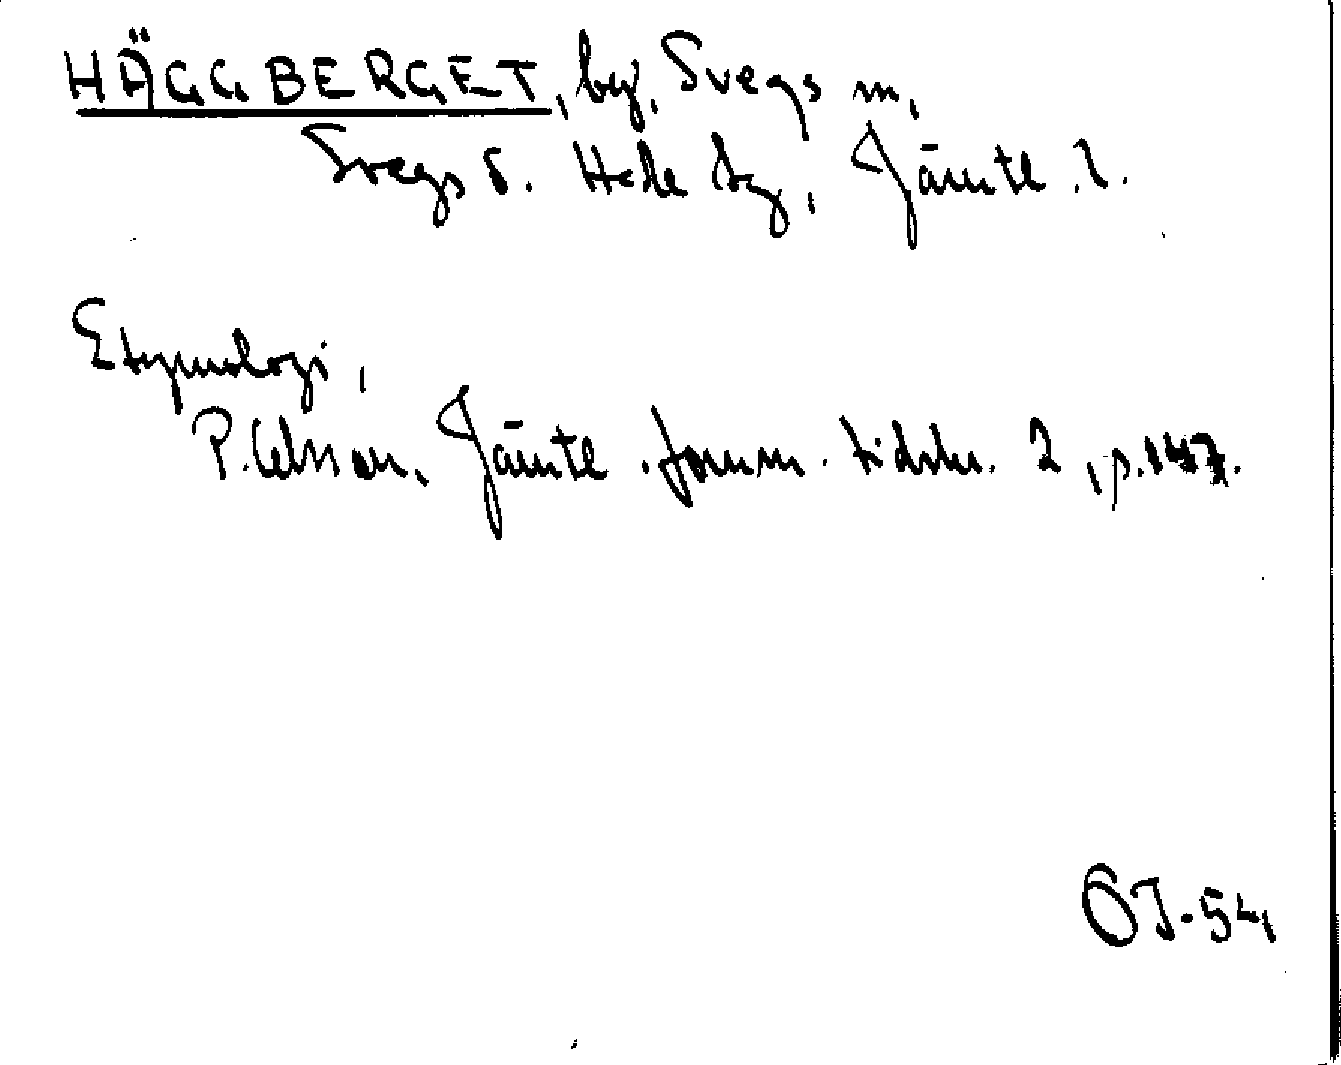 HÄGGBERGET, by, Svegs m,
Svegs s. Hede tg, Jämtl. l.
Etymologi,
P. Olsson, Jämtl. fornm. tidskr. 2, p. 147.
OJ-54